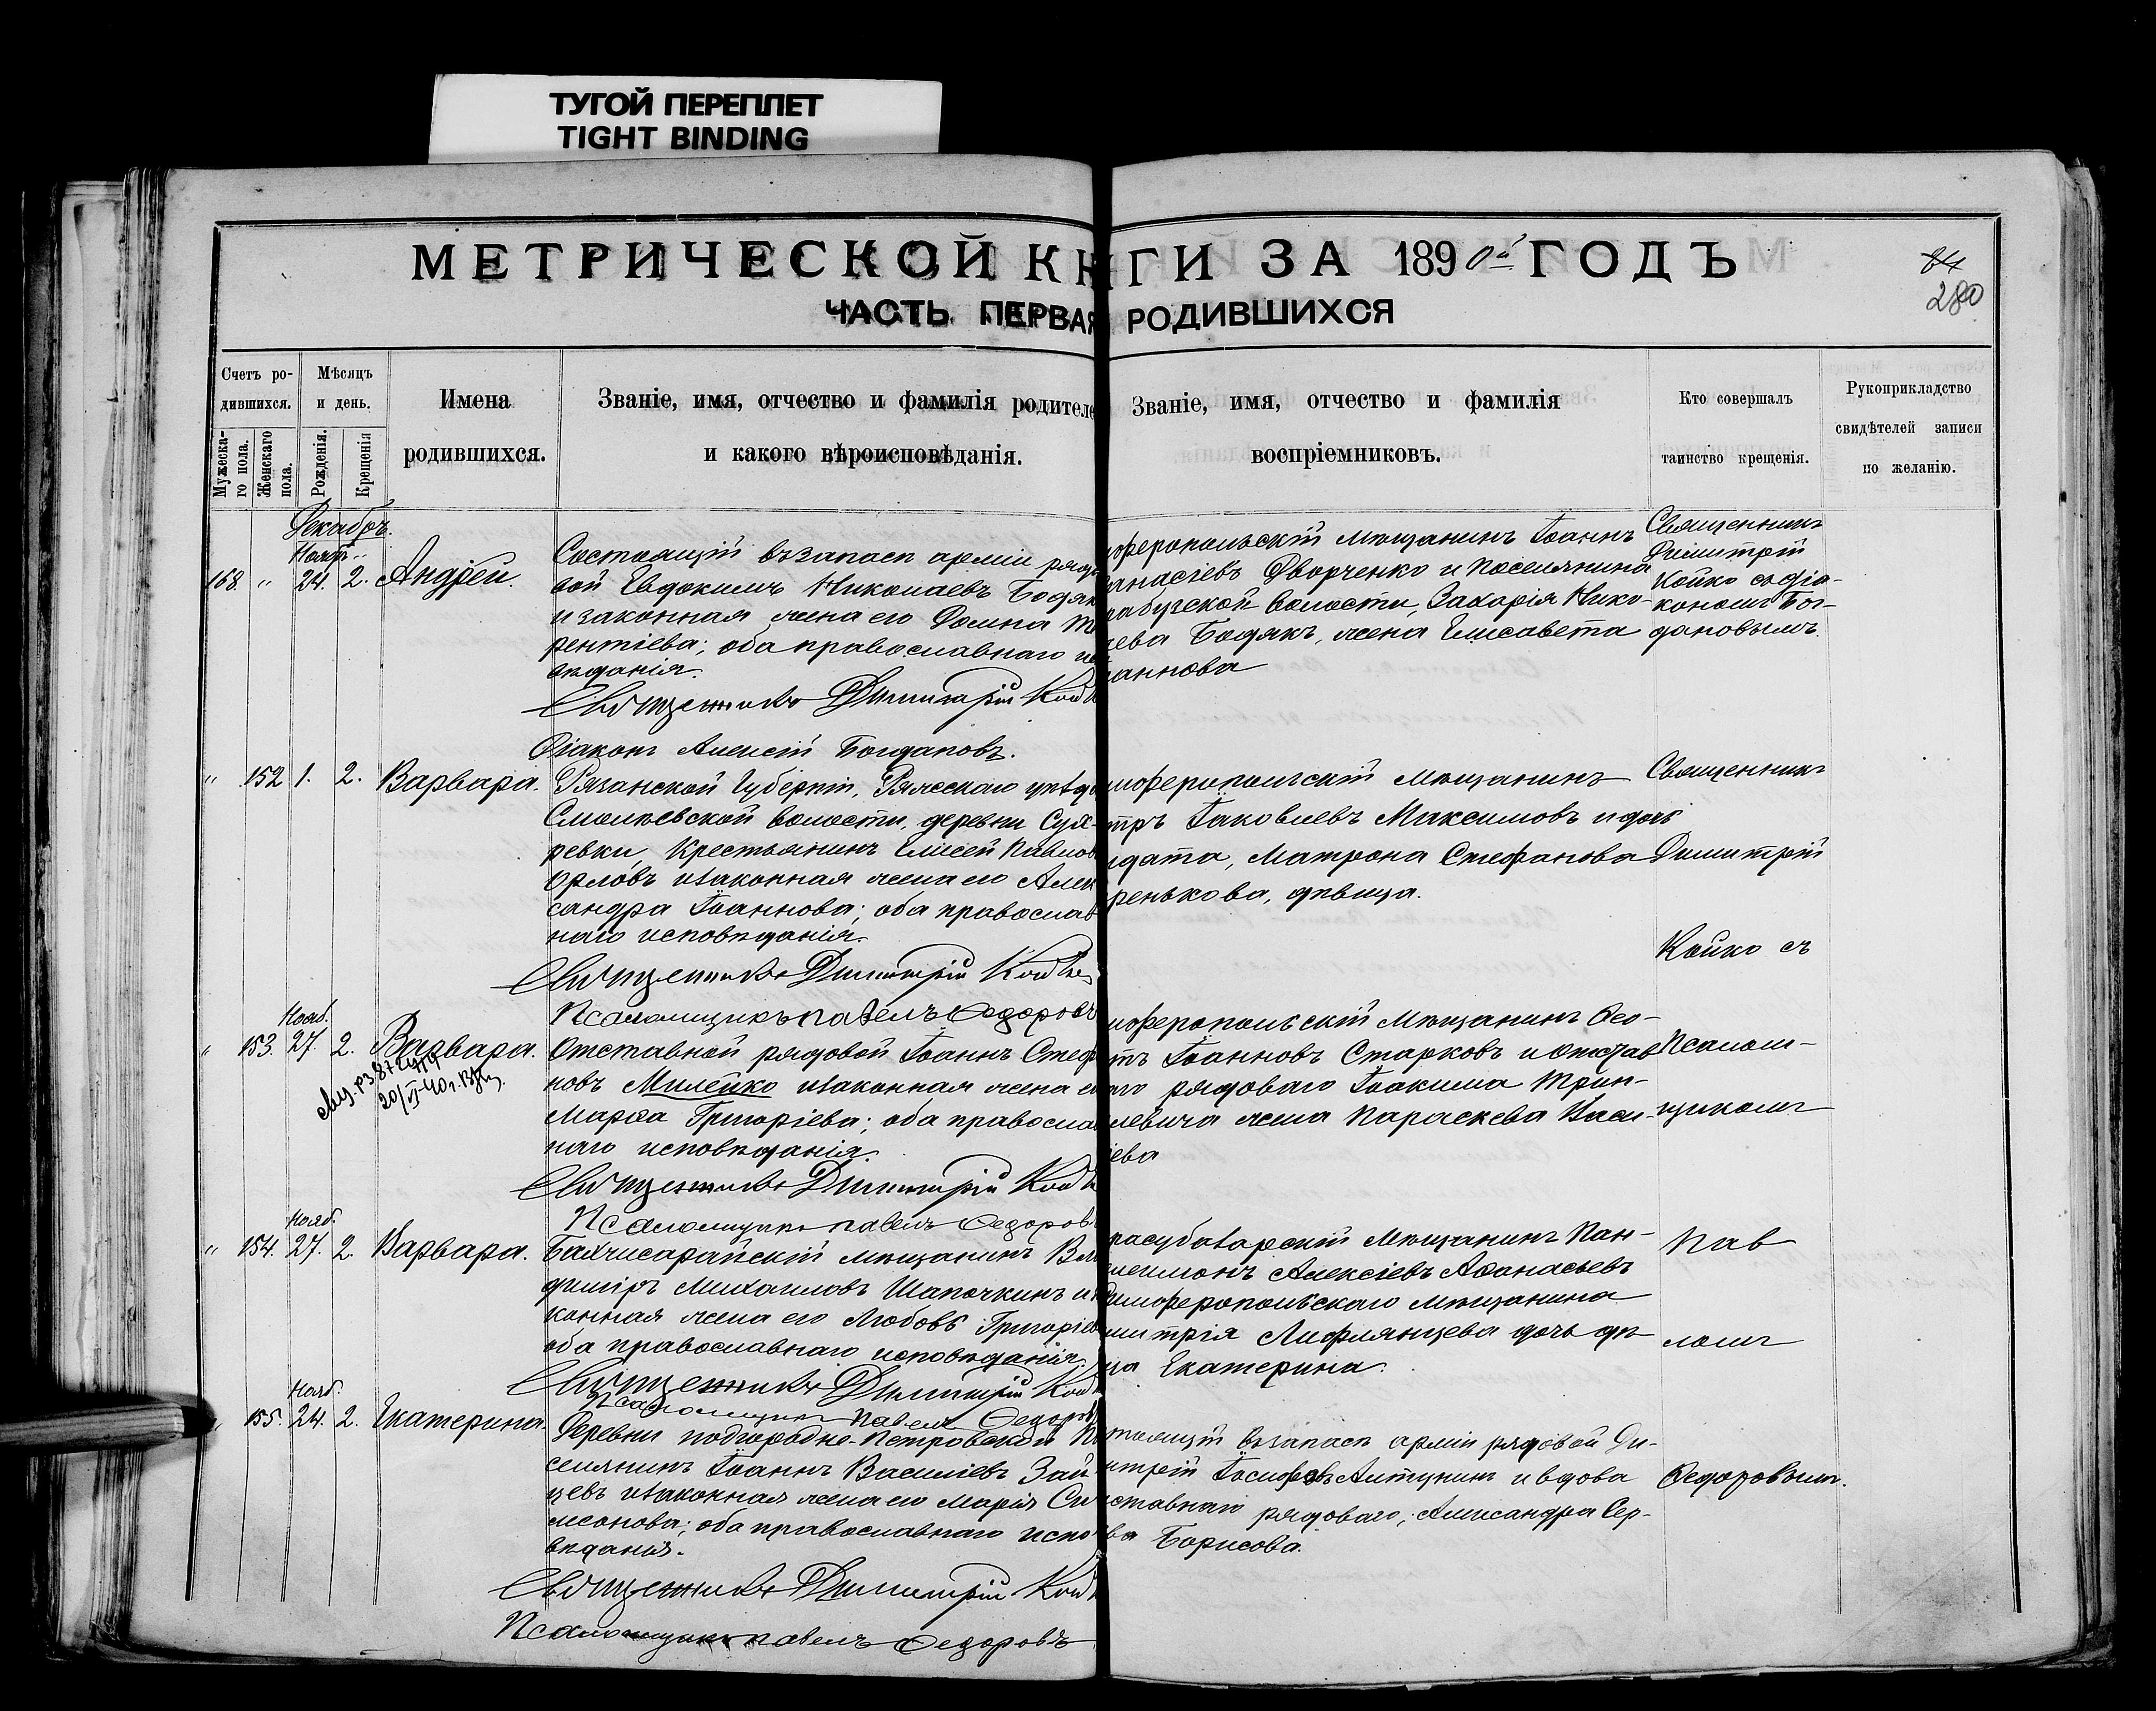 ТУГОЙ ПЕРЕПЛЕТ
TIGHT BINDING
МЕТРИЧЕСКОЙ КНИГИ ЗА 1890й ГОДЪ
84
280
ЧАСТЬ ПЕРВАЯ РОДИВШИХСЯ
Счетъ ро-
дившихся.
Мужеска-
го пола.
Женскаго
пола.
Мѣсяцъ
и день.
Рожденія.
Крещенія
Имена
родившихся.
Званіе, имя, отчество и фамилія родителе
и какого вѣроисповѣданія.
Званіе, имя, отчество и фамилія
воспріемниковъ.
Кто совершалъ
таинство крещенія.
Рукоприкладство
свидѣтелей записи
по желанію.
Декабрь.
Нояб.
168. " 24. 2. Андрей.
Состоящій въ запасѣ арміи рядо
вой Евдокимъ Николаевъ Бодяк
и законная жена его Домна Те
рентіева; оба православнаго испо
вѣданія.
Священникъ Димитрій Койко
Діаконъ Алексій Богдановъ.
оферопольскій мѣщанинъ Іоаннъ
анасіевъ Дворченко и поселянина
рабузской волости, Захарія Нико-
лева Бодякъ, жена Елисавета
аннова
Священникъ
Димитрій
Койко съ діа-
кономъ Бог-
дановымъ.
" 152 1. 2. Варвара.
Рязанской Губерніи, Ряжскаго уѣзда
Смолевской волости, деревни Сух-
ревки, Крестьянинъ Елисей Павлов
Орловъ и законная жена его Алек
сандра Іоаннова; оба православ
наго исповѣданія.
Священникъ Димитрій Койко
Псаломщикъ Павелъ Ѳедоровъ
мферопольскій мѣщанинъ
тръ Іаковлевъ Максимовъ и дочь
лдата, Матрона Стефанова
ренькова, дѣвица.
Священникъ
Димитрій
Койко съ
" 153. Нояб. 27. 2. Варвара.
Отставной рядовой Іоаннъ Стефа
новъ Милейко и законная жена его
Марѳа Григоріева; оба православ
наго исповѣданія.
Священникъ Димитрій Койко
Псаломщикъ Павелъ Ѳедоровъ
мферопольскій мѣщанинъ Ѳео-
тъ Іоанновъ Старковъ и отстав
аго рядоваго Іоакима Трин-
левича жена Параскева Васи-
іева
Псалом-
щикомъ
" 154. Нояб. 27. 2. Варвара.
Бахчисарайскій мѣщанинъ Вла
диміръ Михаиловъ Шапочкинъ и за
конная жена его Любовь Григоріев
оба православнаго исповѣданія.
Священникъ Димитрій Койко
Псаломщикъ Павелъ Ѳедоровъ
расубазарскій мѣщанинъ Пан-
леимонъ Алексіевъ Аѳанасьевъ
имферопольскаго мѣщанина
митрія Лифлянцева дочь дѣ
ца Екатерина.
Пав
ломъ
" 155. Нояб. 24. 2. Екатерина.
Деревни подгородне-Петровской По
селянинъ Іоаннъ Василіевъ Зай
цевъ и законная жена его Марія Си
меонова; оба православнаго испо
вѣданія.
Священникъ Димитрій Койко
Псаломщикъ Павелъ Ѳедоровъ
тоящій въ запасѣ арміи рядовой Ди-
итрій Іосифовъ Алтунинъ и вдова
ставнаго рядоваго, Александра Сер-
ва Борисова.
Ѳедоровымъ.